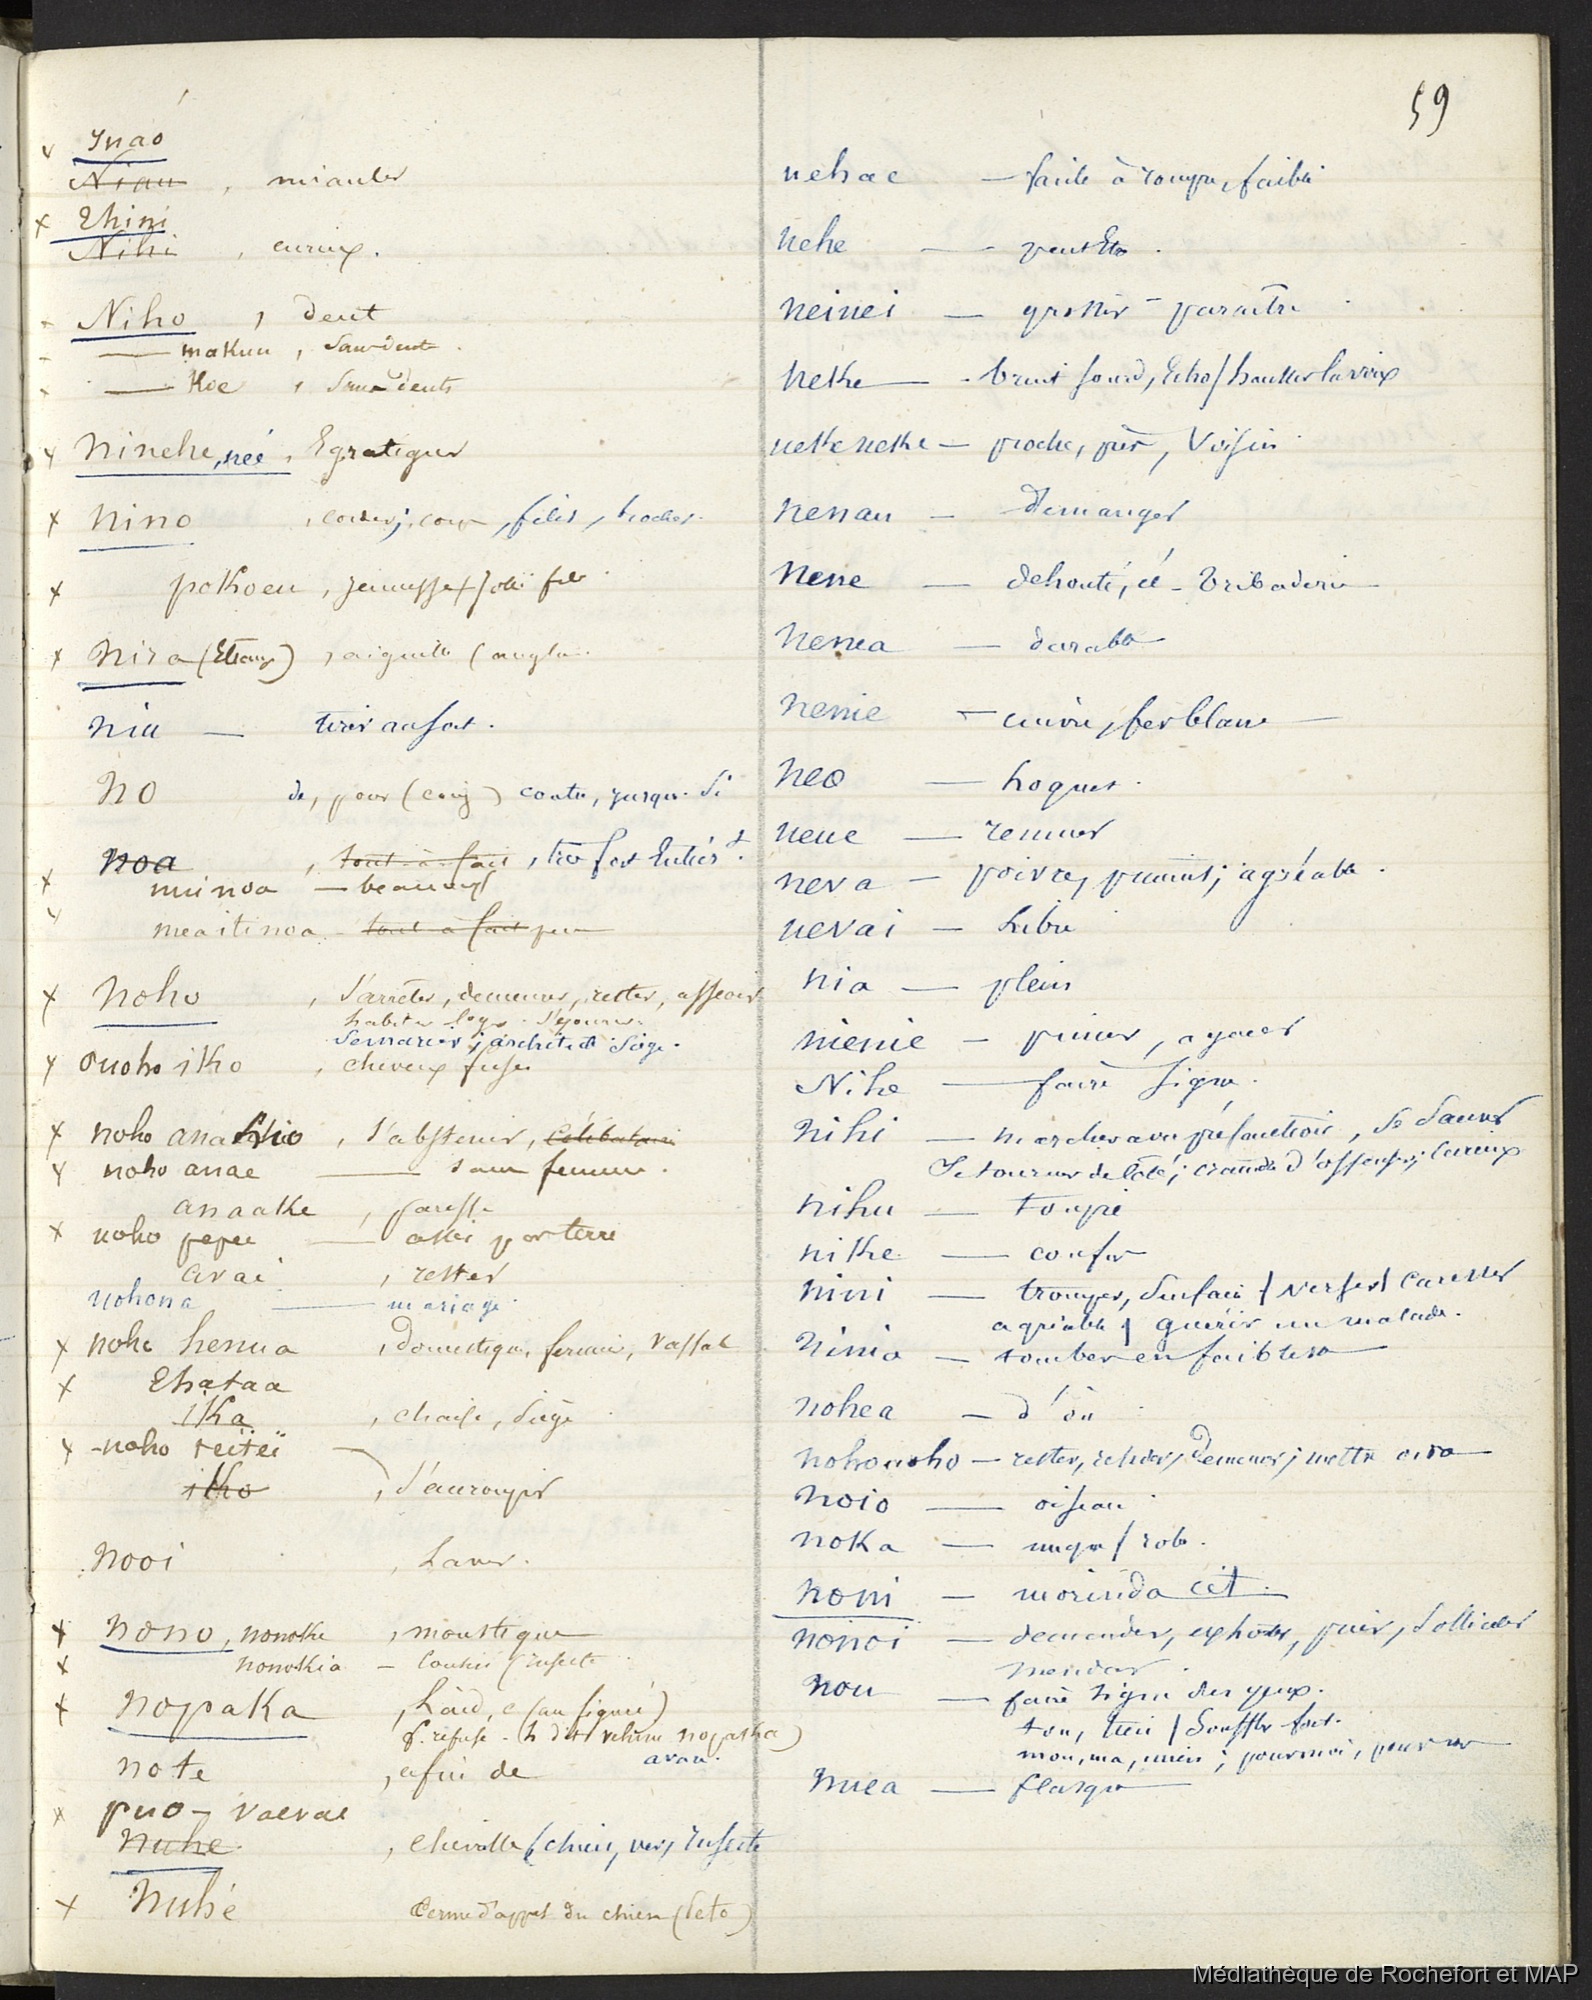 59
Inaó
Niau , miauler
Ehini
Nihi , curieux.
Niho , dent
— makuu , Sur-dent
— Koe , Sans dents
Ninehe, neé , Egratigner
nino , corder; , filer,
pokoeu , jeunesse / jolie fille
nira (Etrang) , aiguille (anglais
niu — tirer au sort.
no de, pour (conj) contre, jusque. Si
noa , tout-à-fait , très fort Entier
nui noa — beaucoup
mea iti noa - tout à fait peu
noho , s'arrêter, demeurer, rester, asseoir
habiter loger séjourner
Se marier ; architecte Siège.
ouoho iko , cheveux frisés
noho ana , s'abstenir, célibataire
noho anae — sans femme.
anaake , paresse
noho pepee — assis par terre
avai , rester
nohona — mariage.
noho henua , Domestique, fermier, Vassal
Ehataa
ika , chaise, siège
-noho teitei —
iko , s'accroupir
nooi , Laver.
nono, nonoke , moustique
nonokia — Cousin / insecte
nopaka , Laid, e (au figuré)
f. refusé - (se dit vehine nopaka)
note , afin de avan.
puo — vaevae
nuhe , cheville / chien, ver, Insecte
Nuhé terme d'appel du chien (Seto)
nehae — facile à rompre, faible
nehe — peut Etre .
neinei — grossir - paraître
neke — bruit sourd, Echo / hausser la voix
nekeneke — proche, près, Voisin
nenau — Démanger
nene — dehonté, éé - bribaderie
nenea — durable
nenie — cuivre, fer blanc —
neo — hoquet .
neue — remuer
neva — poivre, piment; agréable .
nevai — Libre
nia — plein
nienie — pincer, agacer
Nihe — faire signe.
nihi — marcher avec précaution , Se Sauver
Se tourner de côté; crainte d'offenser; Curieux
nihu — toupie
nike — coufin
nini — tromper, Surfaire / Verser / Caresser
agréable / guérir un malade.
ninia — tomber en faiblesse —
nohea — d'où
nohonoho — rester, résider, Demeurer ; mettre
noio — oiseau
noka — nuque / robe .
noni — morinda cit.
nonoi — demander, exhorter, prier, Solliciter
mendier .
nou — faire signe des yeux.
ton, tien / Souffler fort.
mon, ma, mien ; pour moi,
nuea — flasque —
Médiathèque de Rochefort et MAP